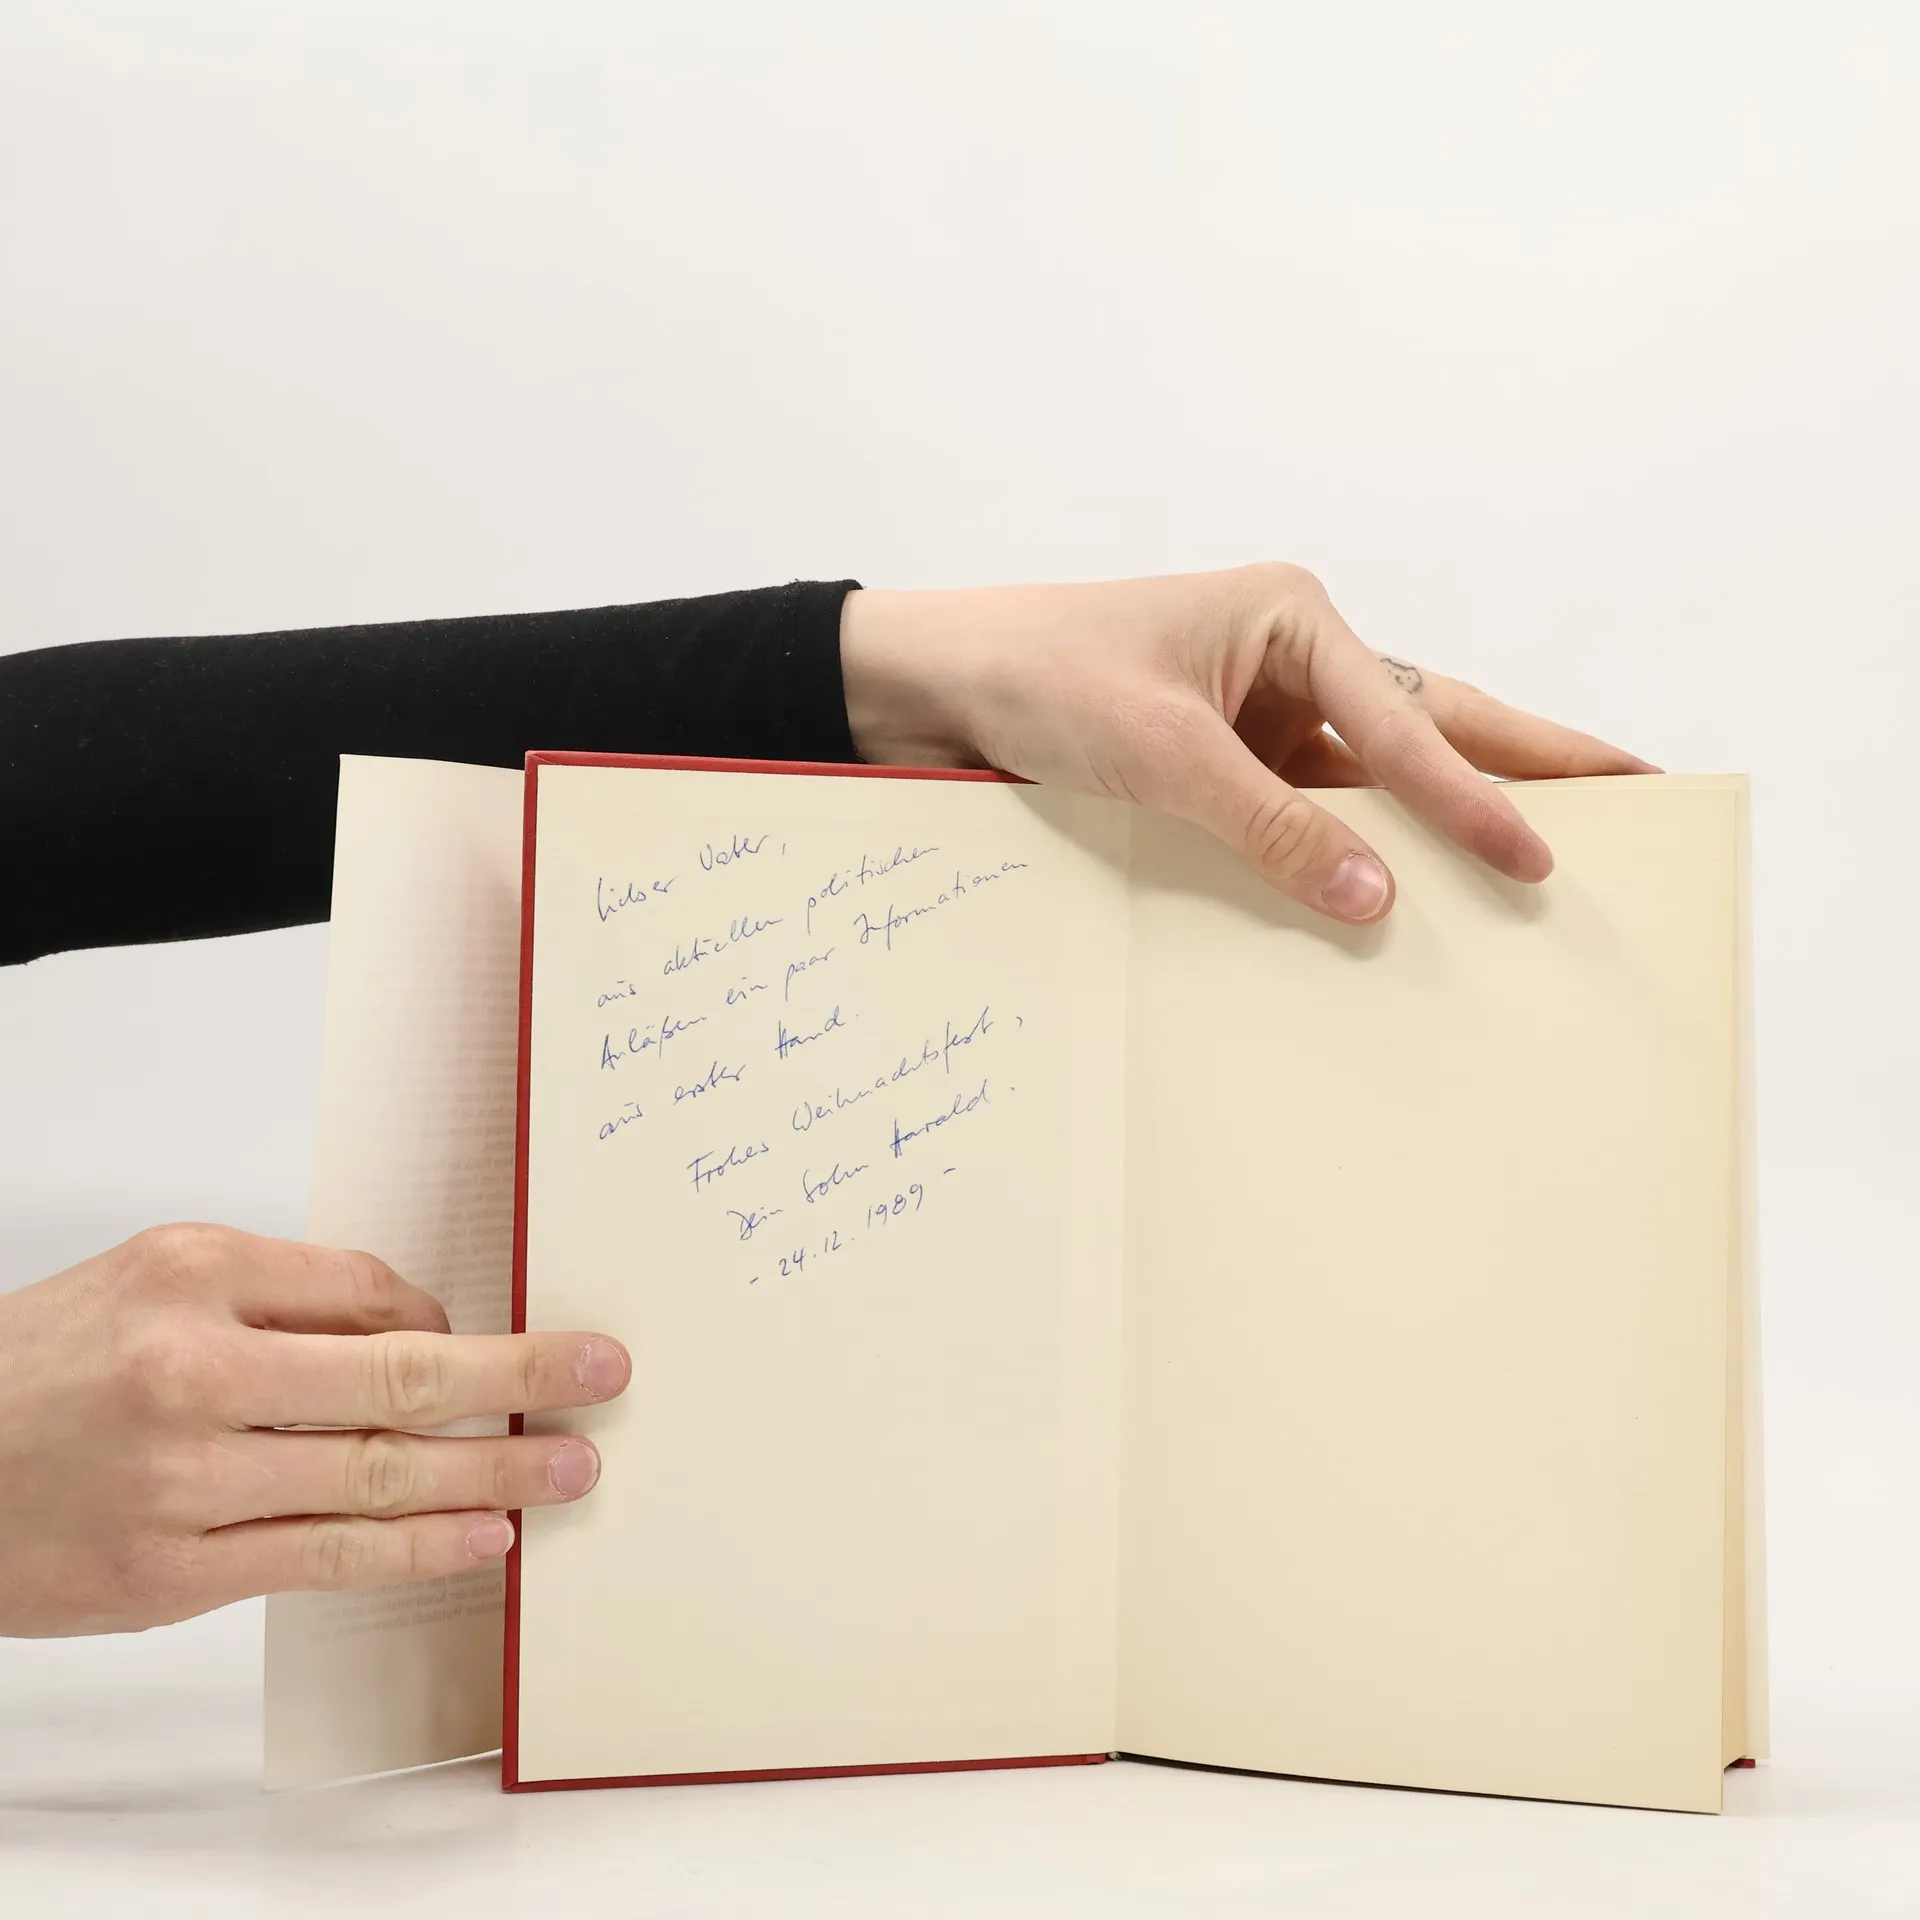 Lieber Vater,
aus aktuellen politischen
Anläßen ein paar Informationen
aus erster Hand.
Frohes Weihnachtsfest,
Dein Sohn Harald.
- 24.12.1989 -